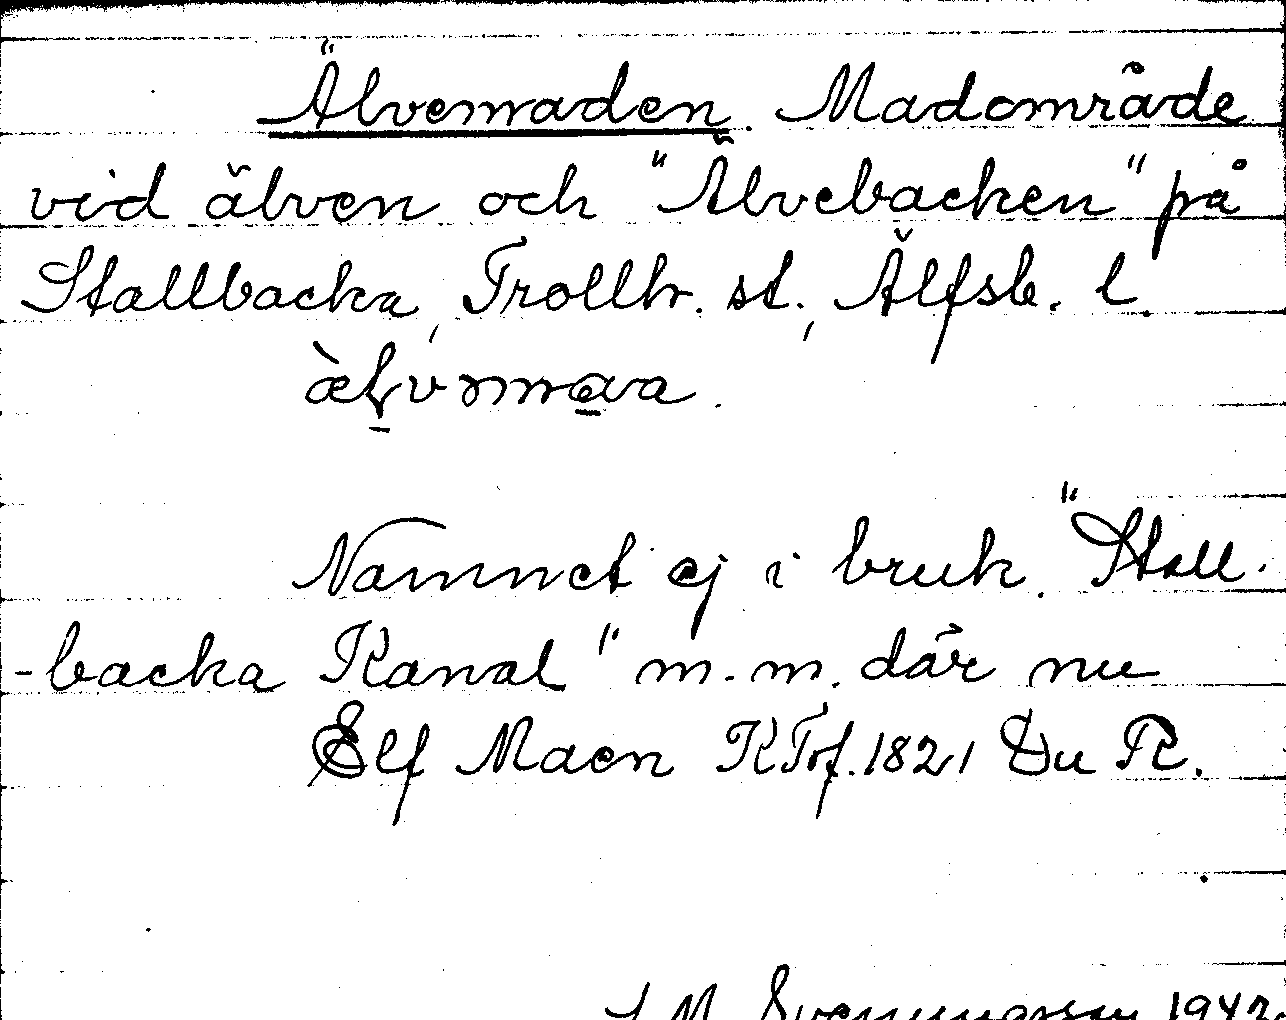 Älvemaden. Madområde
vid älven och "Älvebacken" på
Stallbacka, Trollh. st., Älfsb. l.
Namnet ej i bruk. "Stall-
-backa Kanal" m.m. där nu
Elf Maen KTof. 1821 Du R.
J M Svenningsson 1942